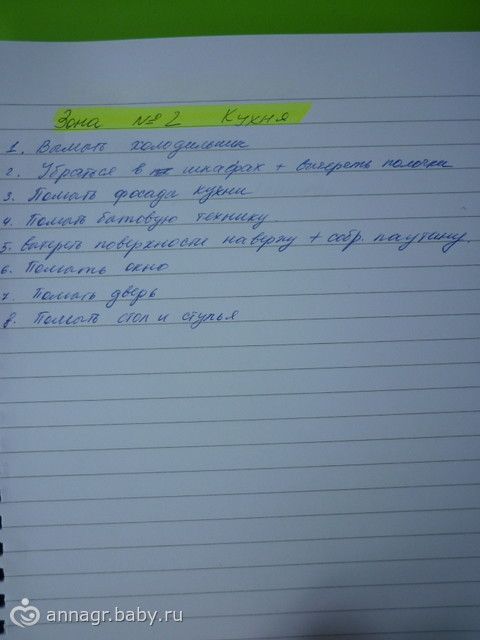 Зона №2 Кухня
1. Вымыть холодильник
2. Убраться в шкафах + вытереть полочки
3. Помыть фосада кухни
4. Помыть бытовую технику
5. Вытереть поверхности наверху + собр. паутину.
6. Помыть окно
7. Помыть дверь
8. Помыть стол и стулья
annagr.baby.ru